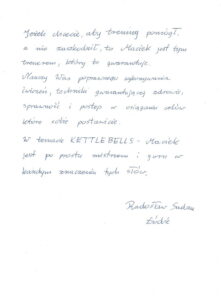 Jeżeli chcecie, aby trening pomógł,
a nie zaszkodził, to Maciek jest tym
trenerem, który to gwarantuje.
Nauczy Was poprawnego wykonywania
ćwiczeń, techniki gwarantującej zdrowie,
sprawność i postęp w osiąganiu celów
które sobie postawicie.
W temacie KETTLEBELLS - Maciek
jest po prostu mistrzem i guru w
każdym znaczeniu tych słów.
Radosław
Łódź